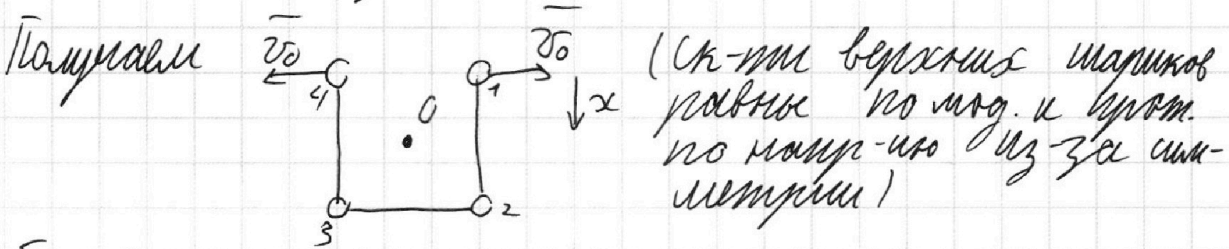 Получаем v̅₀ v̅₀ (Ск-ти верхних шариков
4 1 x равны по мод. и прот.
O по напр-ию из-за сим-
3 2 метрии)